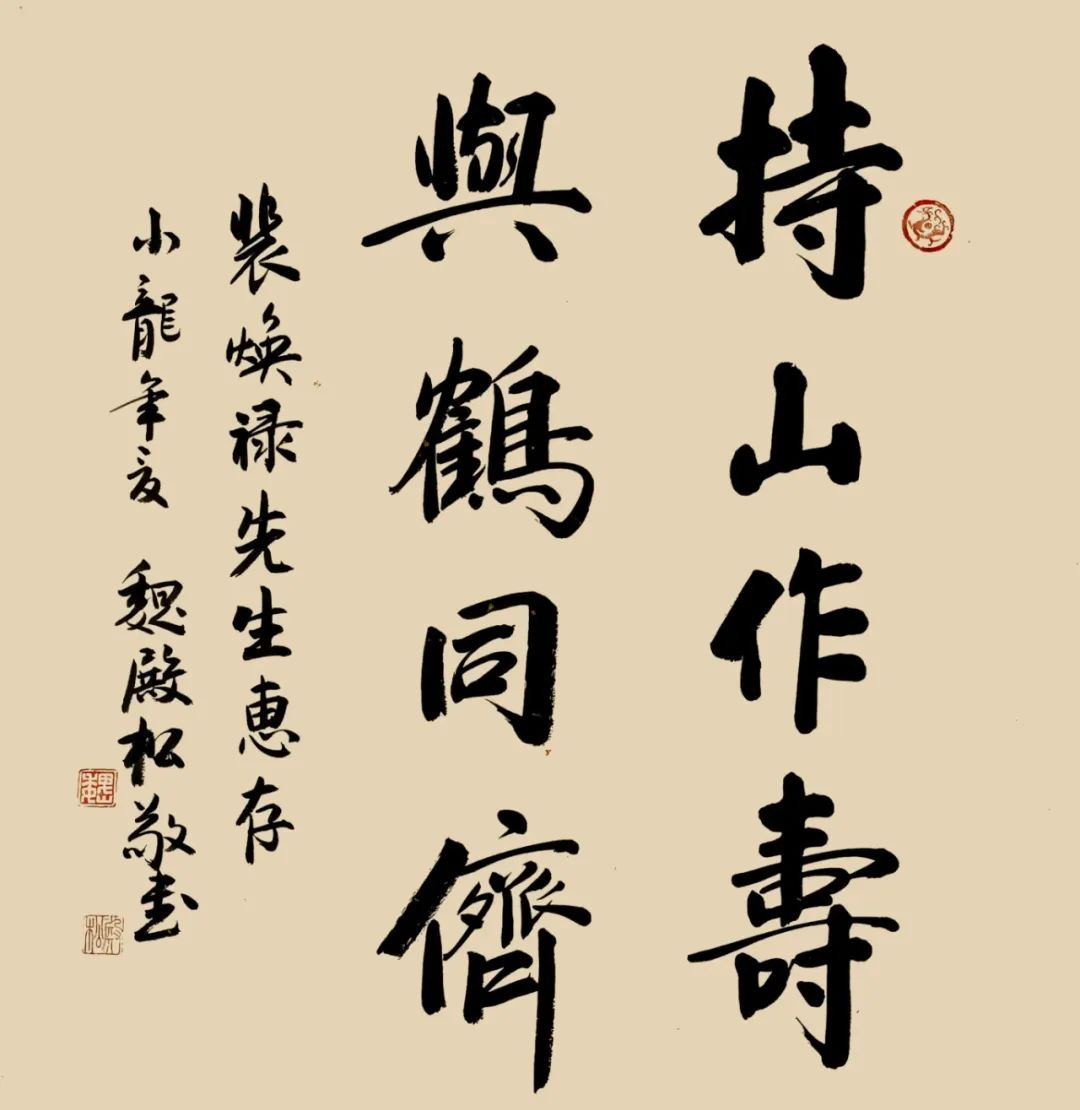 持山作壽
與鶴同儕
裴焕禄先生惠存
小龍年夏 魏殿松敬书
魏